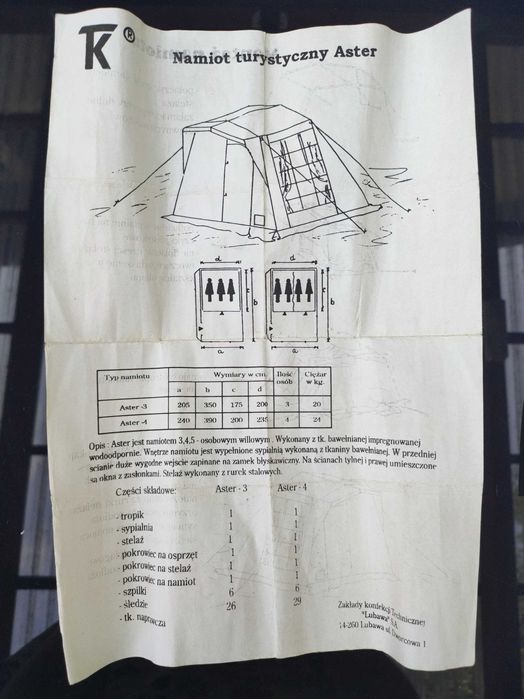 TK ®
Namiot turystyczny Aster
d d
c b c b
a a
Typ namiotu Wymiary w cm. Ilość osób Ciężar w kg.
a b c d
Aster -3 205 350 175 200 3 20
Aster -4 240 390 200 235 4 24
Opis : Aster jest namiotem 3,4,5 - osobowym willowym . Wykonany z tk. bawełnianej impregnowanej
wodoodpornie. Wnętrze namiotu jest wypełnione sypialnią wykonaną z tkaniny bawełnianej. W przedniej
scianie duże wygodne wejście zapinane na zamek błyskawiczny. Na ścianach tylnej i prawej umieszczone
są okna z zasłonkami. Stelaż wykonany z rurek stalowych.
Części składowe: Aster - 3 Aster - 4
- tropik 1 1
- sypialnia 1 1
- stelaż 1 1
- pokrowiec na osprzęt 1 1
- pokrowiec na stelaż 1 1
- pokrowiec na namiot 1 1
- szpilki 6 6
- śledzie 26 29
- tk. naprawcza
Zakłady konfekcji Technicznej
"Lubawa" S.A.
14-260 Lubawa ul. Dworcowa 1